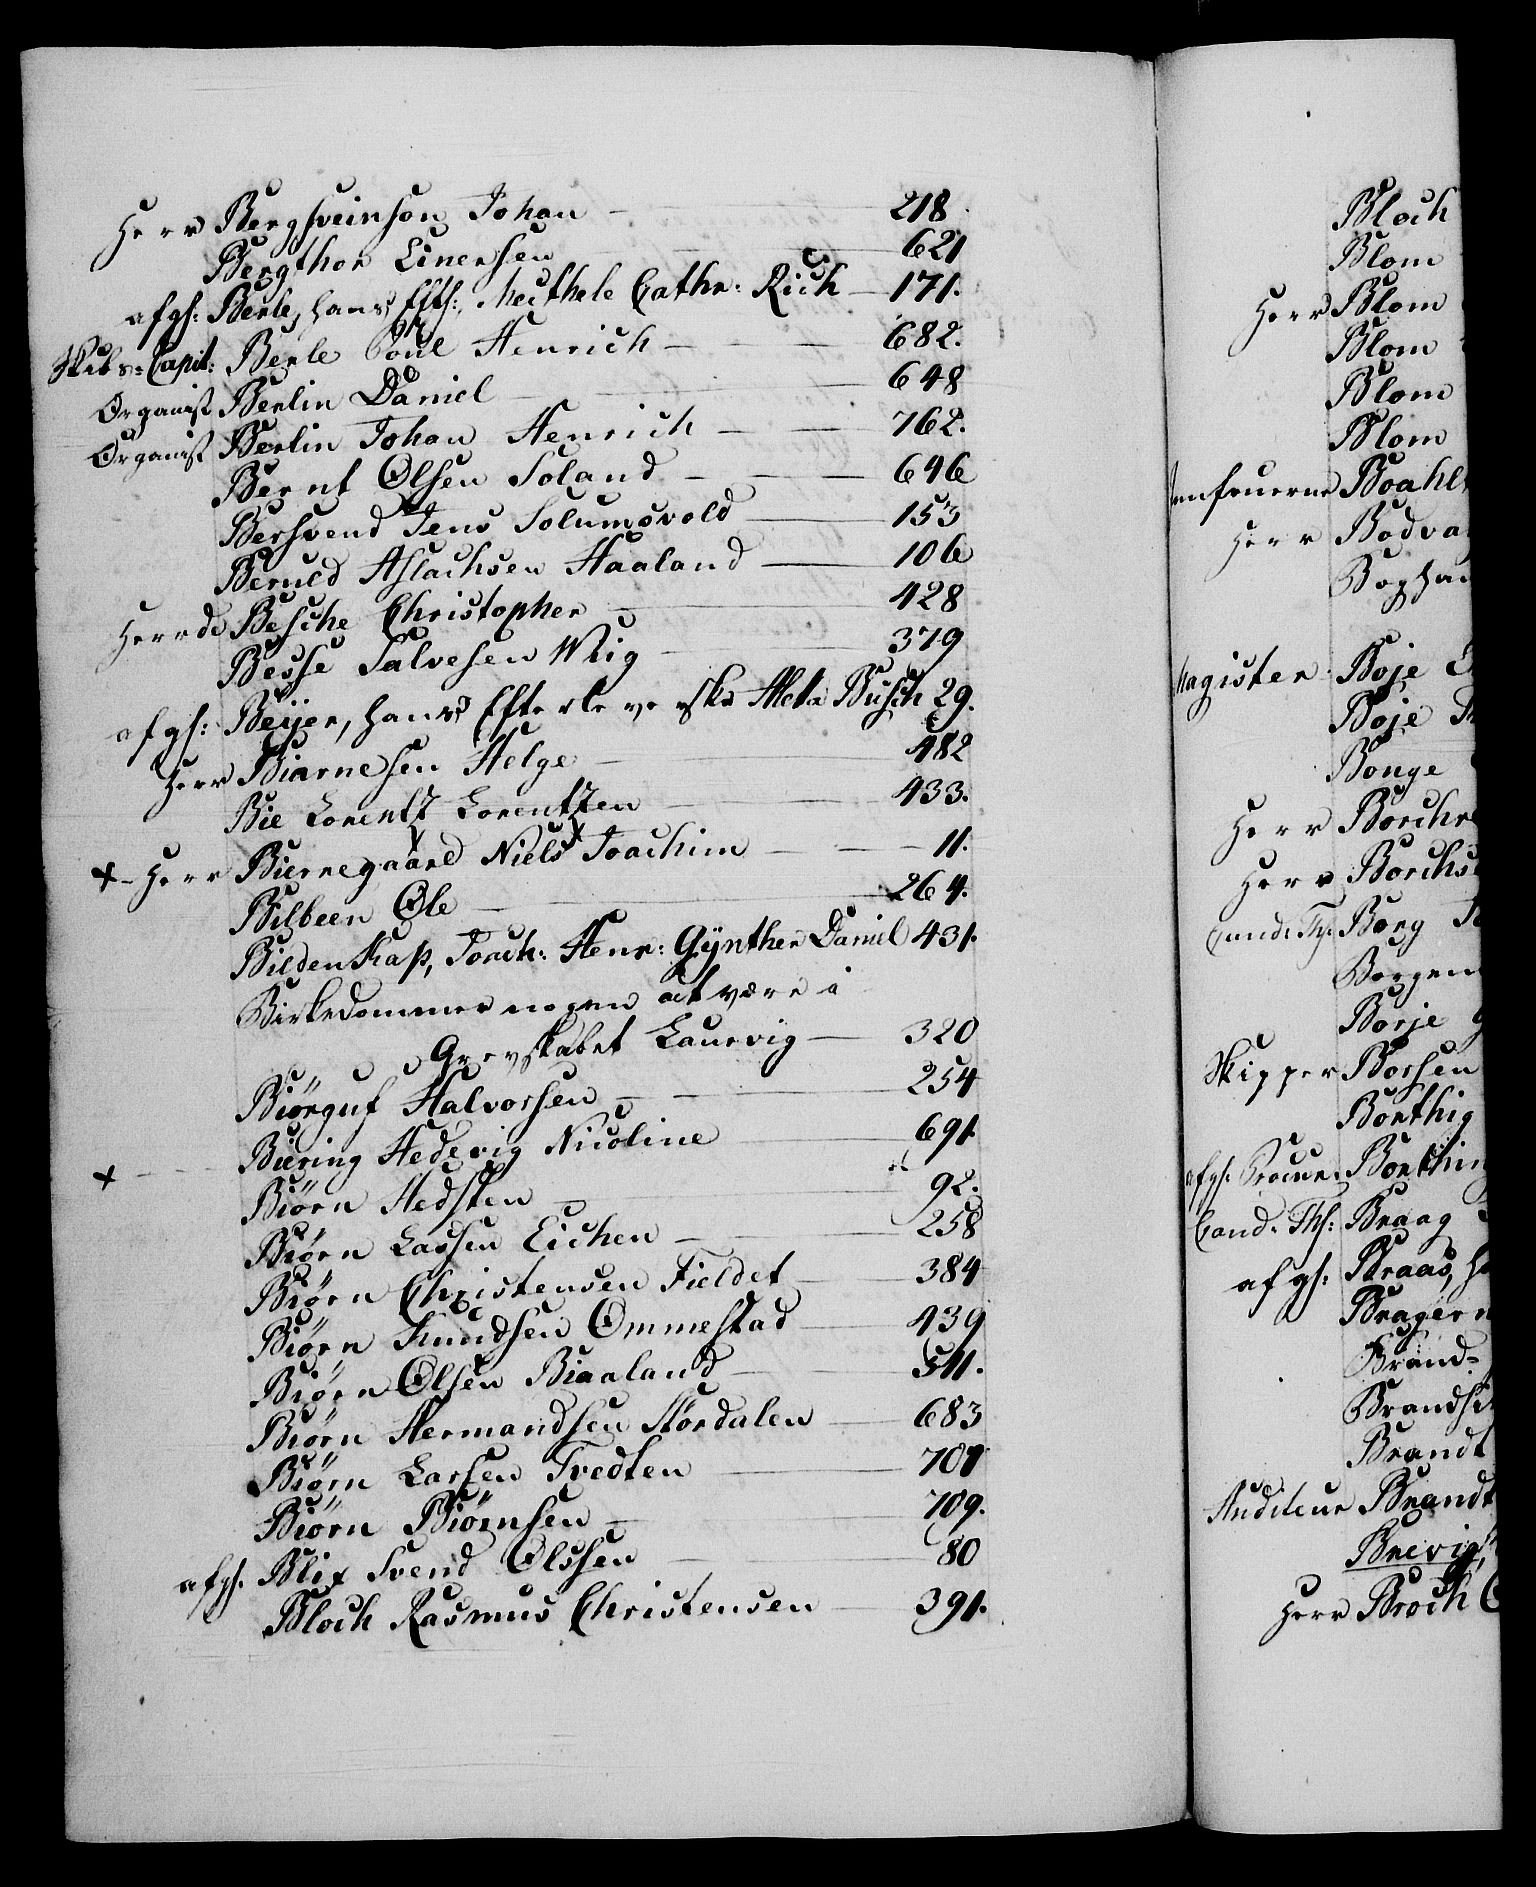 Herr Bergsveinson Johan - 218.
Bergthor Einersen - 621
afgf: Berle, hans Eftf: Mecthele Cathr: Rich - 171.
Skibs-Capit: Berle Poul Henrich - 682.
Organist Berlin Daniel - 648
Organist Berlin Johan Henrich - 762.
Bernt Olsen Soland - 646
Bersvend Jens Solumsvold - 153
Beruld Aslachsen Haaland - 106
Herr de Besche Christopher - 428
Besse Salvesen Wiig - 379
afgf: Beyer, hans Efterleverske Meta Busch 29.
Herr Biarnesen Helge - 482
Bie Lorentz Lorentzen - 433.
+ - Herr Biernegaard Niels Joachim - 11.
Bilbeen Ole - 264.
Bilden Kaß, Torch: Henr: Gynther Daniel 431.
Birkedommer nogen at være i
Grevskabet Laurvig - 320
Biørguf Halvorsen - 254
Biering Hedevig Nicoline - 691
+ - Biørn Hedsten - 92.
Biørn Lassen Eichen - 258
Biørn Christensen Fieldet - 384
Biørn Knudsen Ommestad - 439
Biørn Olsen Biaaland - 511.
Biørn Hermandsen Størdalen - 683
Biørn Larsen Tvedten - 701
Biørn Biørnsen - 709.
afgf. Blix Svend Olssen - 80
Bloch Rasmus Christensen - 391.
Bloch
Blom
Herr Blom
Blom
Blom
Blom
Boahl
Herr Bodva
Magister Boje
Boje
Bonge
Herr Borchr
Herr Borchs
Cand: Th: Borg
Borgen
Borje
Skipper Borsen
Borthig
afgf: Procur. Borthin
Cand. Th: Braag
afgf: Braas, h
Bragern
Brand-
Brandt
Auditeur Brandt
Brevig,
Herr Broch